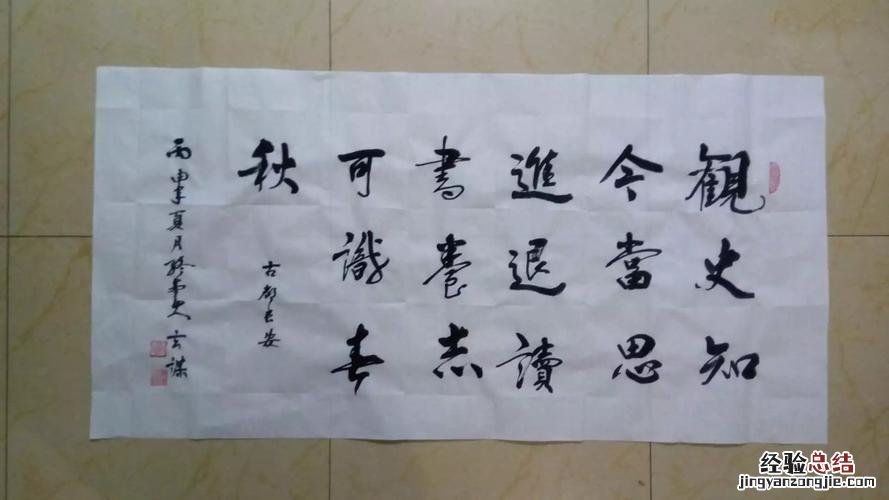 觀史知
今當思
進退讀
書養志
可識春
秋
古都長安
丙申年夏月
玄謀
经验总结
jingyanzongjie.com